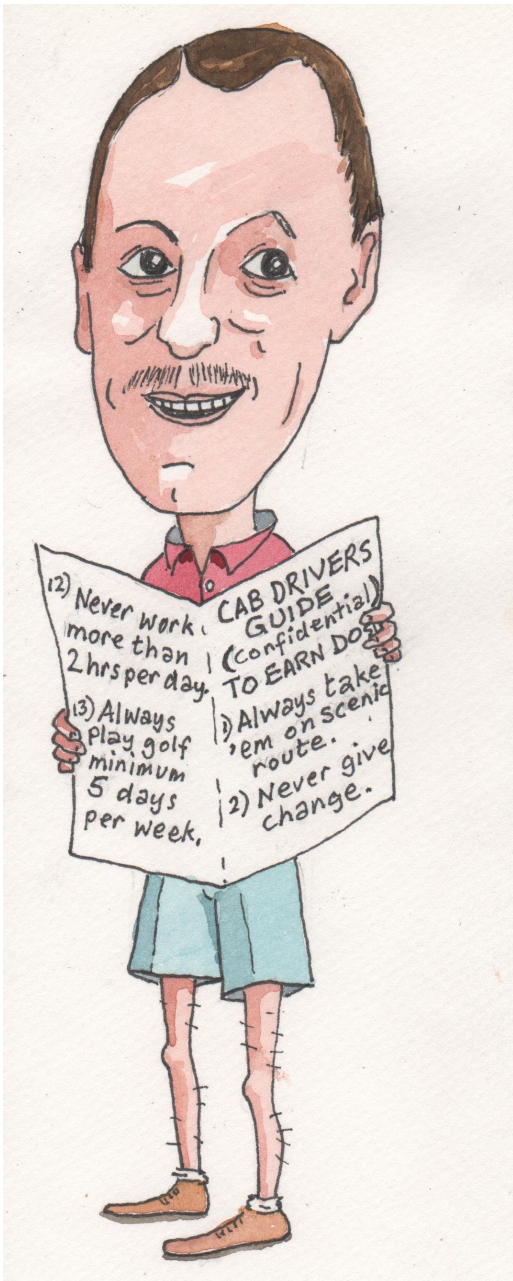 12) Never work
more than
2 hrs per day.
13) Always
play golf
minimum
5 days
per week.
CAB DRIVERS
GUIDE
(confidential)
TO EARN DOSH
1) Always take
'em on scenic
route.
2) Never give
change.